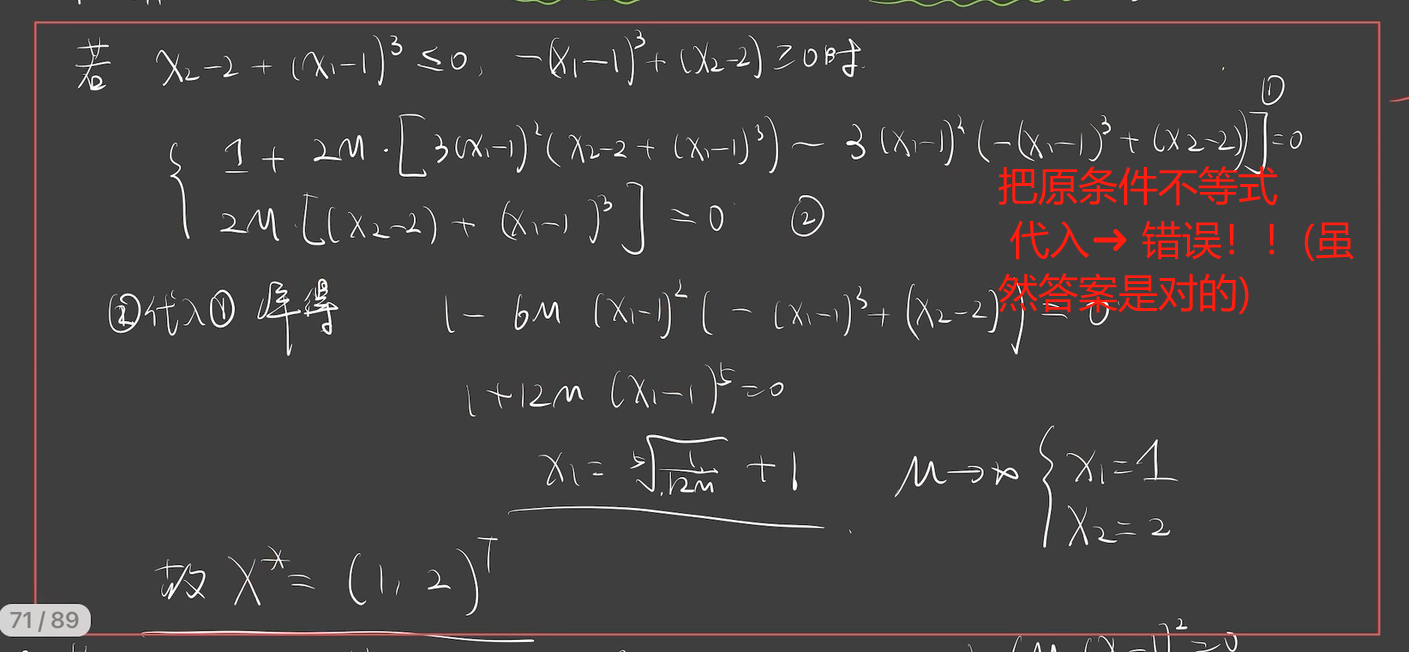 若 x₂-2+(x₁-1)³≤0, -(x₁-1)³+(x₂-2)≥0时.
{ 1+2M·[3(x₁-1)²(x₂-2+(x₁-1)³)-3(x₁-1)²(-(x₁-1)³+(x₂-2))]=0 ①
2M[(x₂-2)+(x₁-1)³]=0 ②
把原条件不等式
代入→ 错误！！(虽
然答案是对的)
②代入① 解得 1-6M(x₁-1)²(-(x₁-1)³+(x₂-2))=0
1+12M(x₁-1)⁵=0
x₁=⁵√(1/12M)+1 M→∞ { x₁=1
x₂=2
故 X*=(1,2)ᵀ
71/89